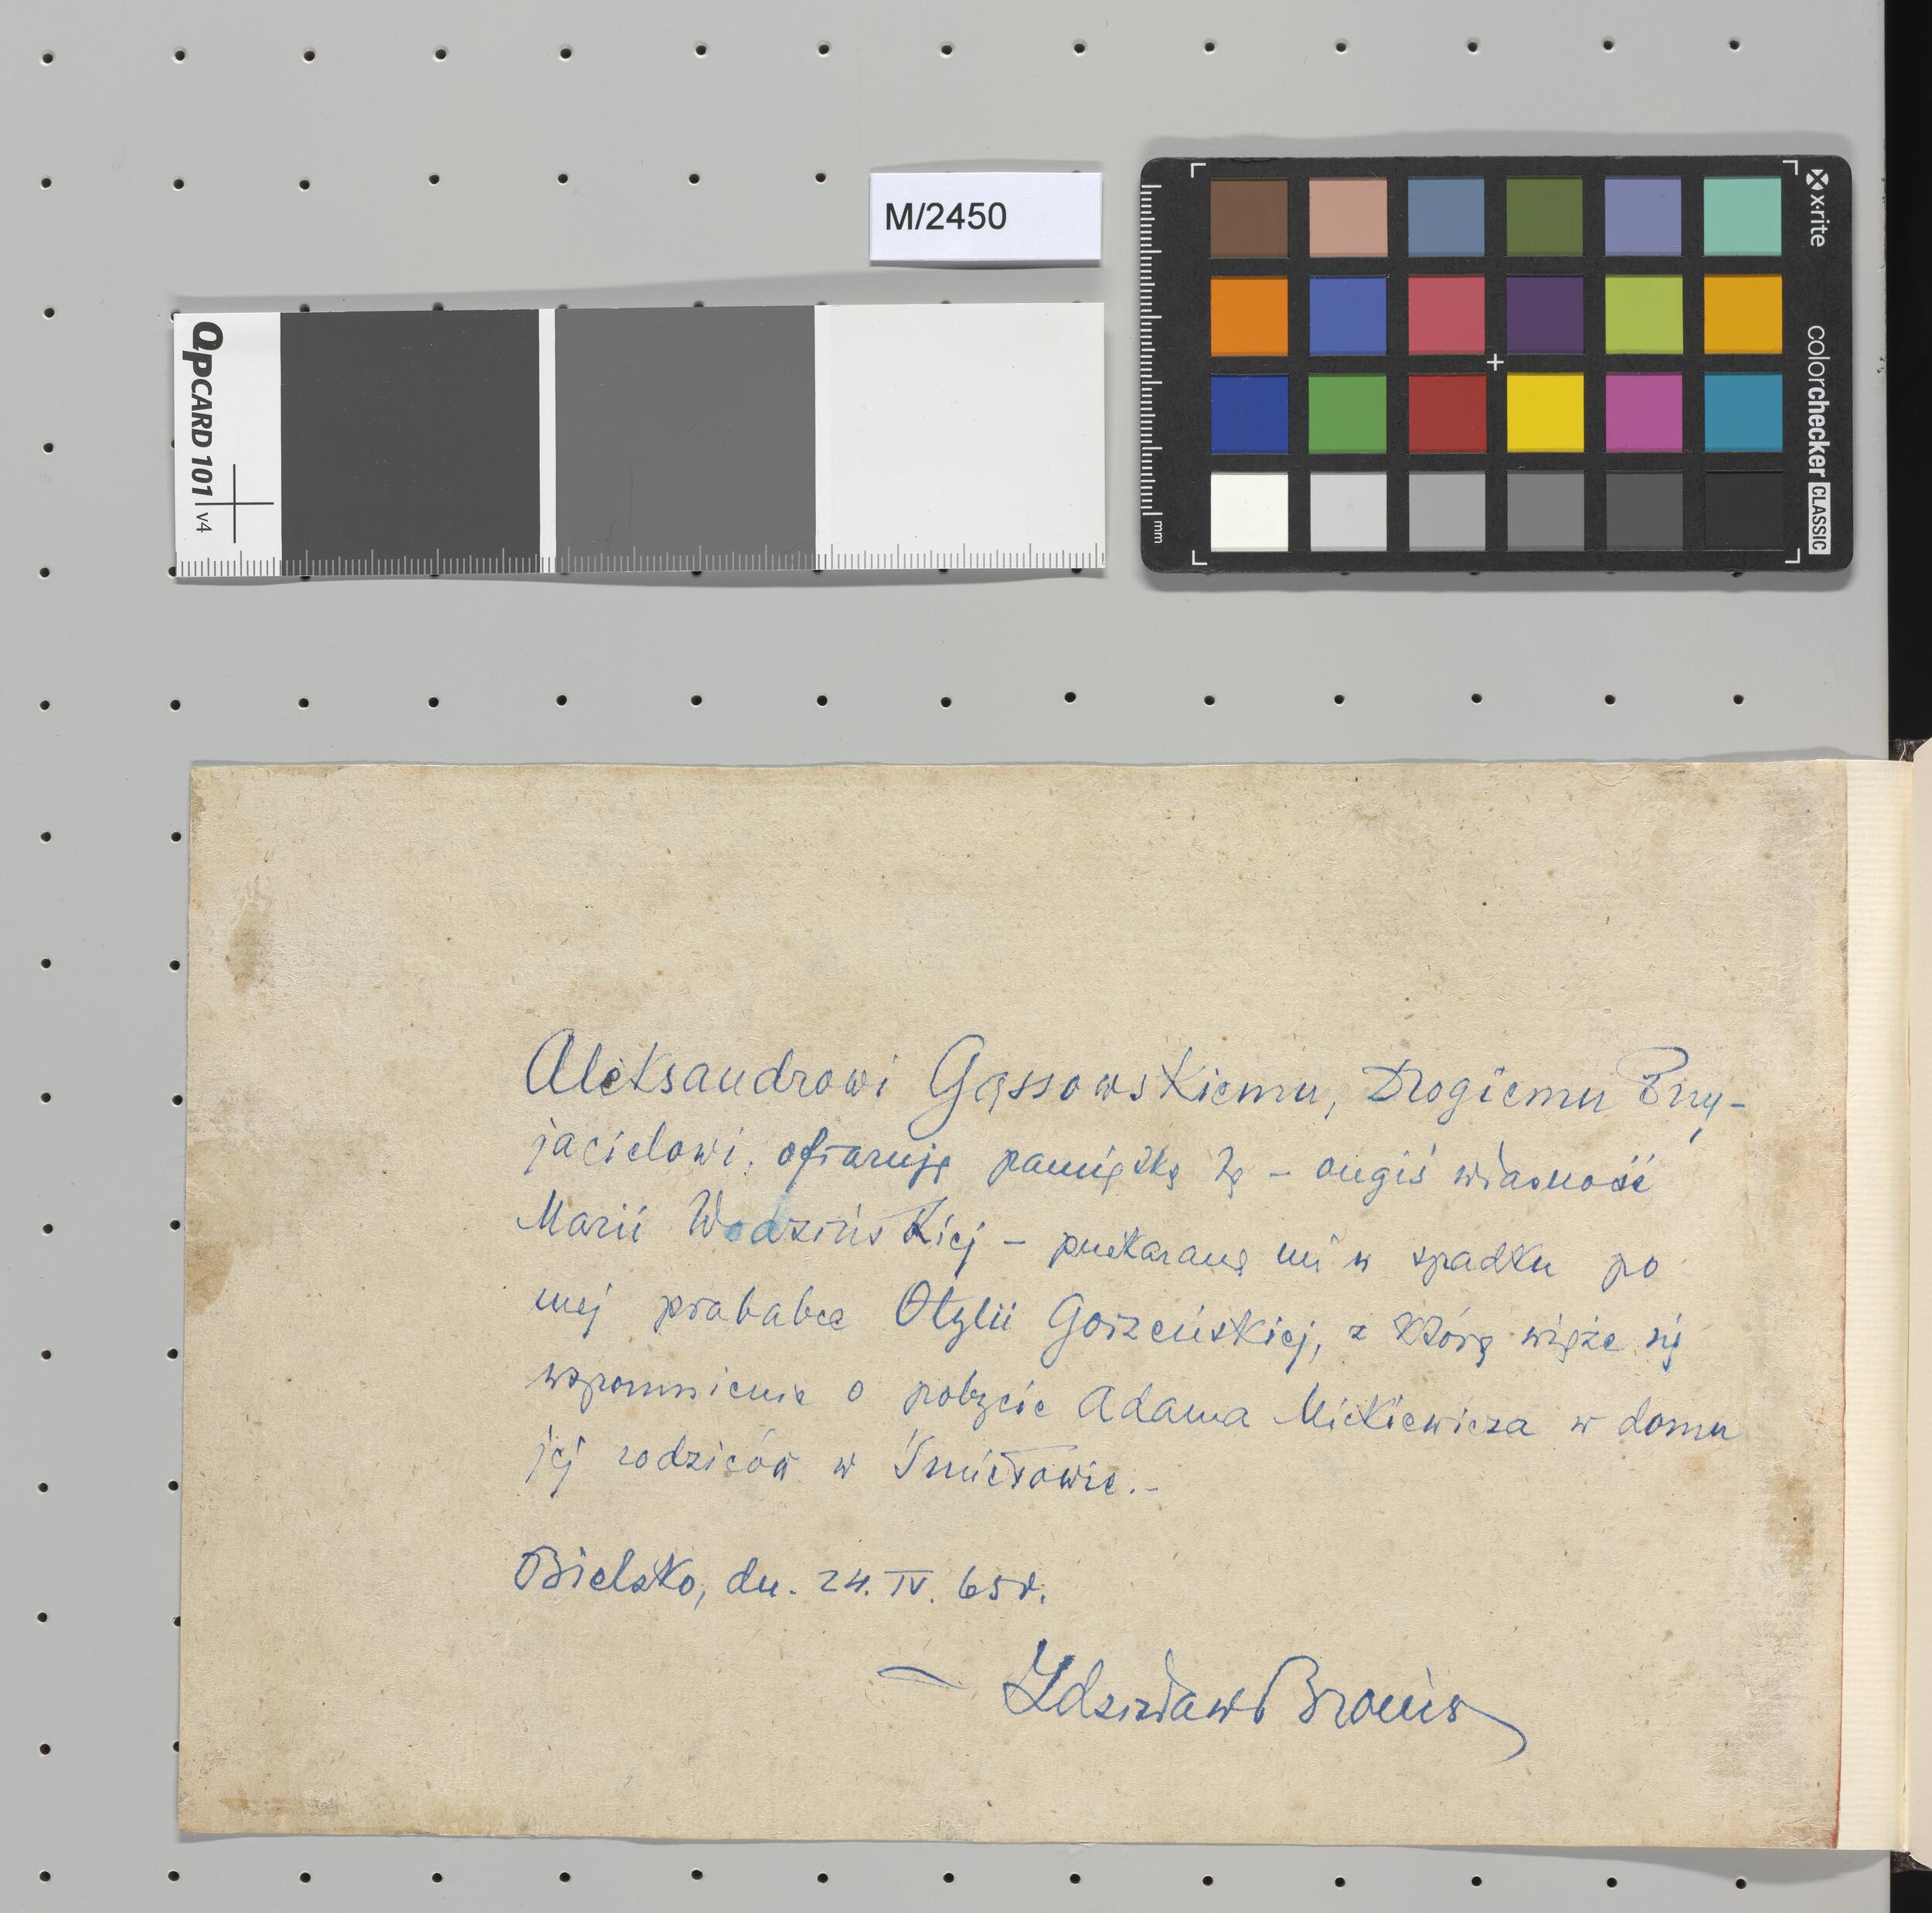 M/2450
QPCARD 101 v4
x·rite
colorchecker CLASSIC
mm
Aleksandrowi Gąssowskiemu, Drogiemu Przy-
jacielowi, ofiaruję pamiątkę tę – ongiś własność
Marii Wodzińskiej – przekazaną mi w spadku po
mej prababce Otylii Gorzeńskiej, z którą wiąże się
wspomnienie o pobycie Adama Mickiewicza w domu
jej rodziców w Śmiełowie.–
Bielsko, dn. 24. IV. 65 r.
Zdzisław